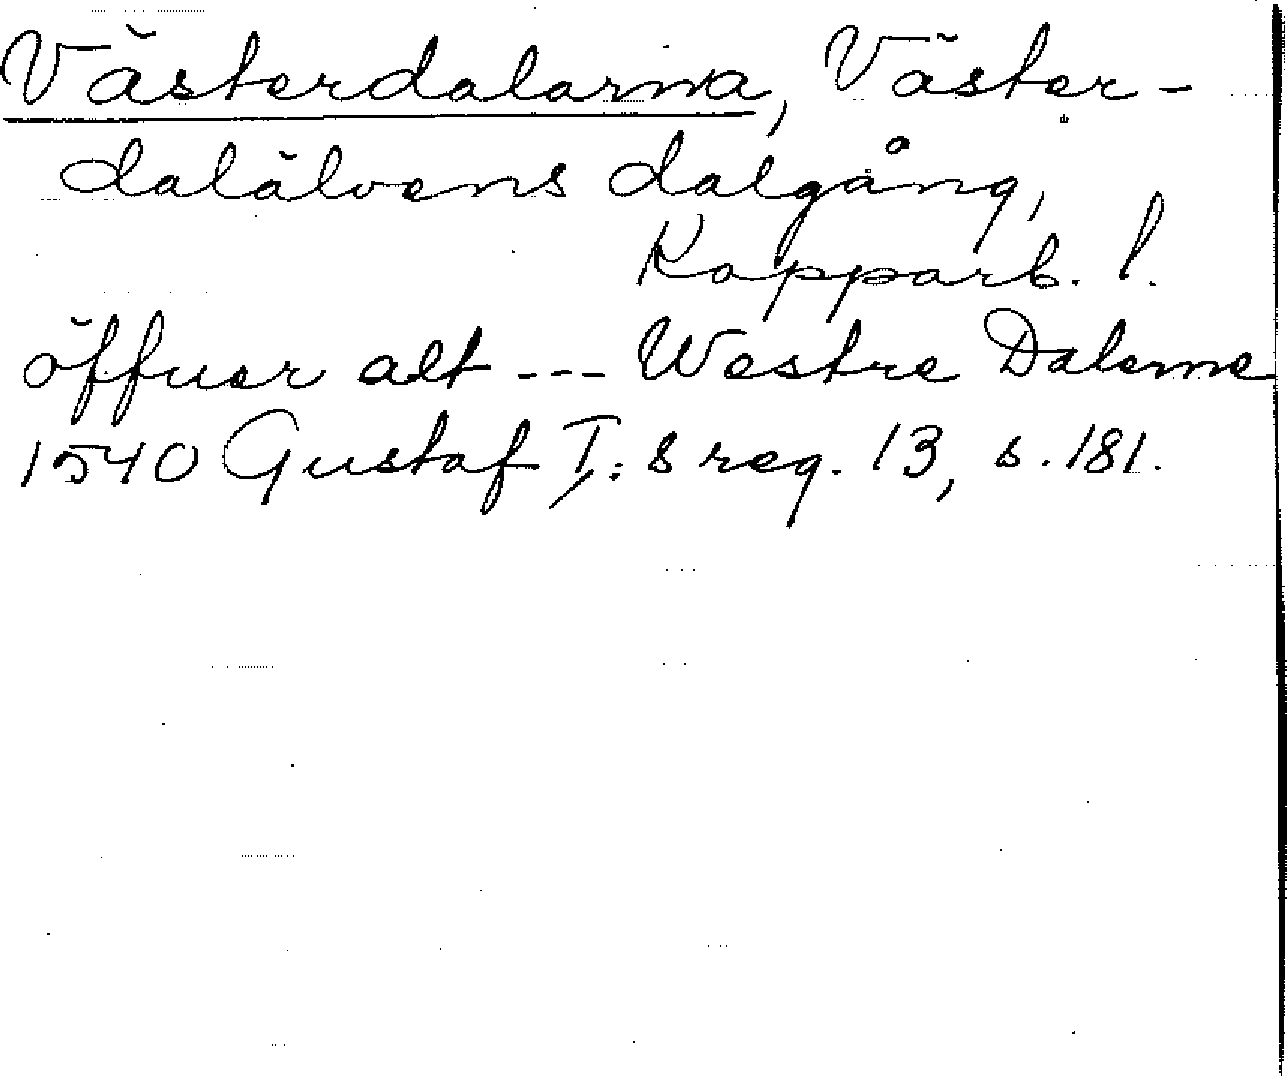 Västerdalarna, Väster-
dalälvens dalgång,
Kopparb. l.
öffuer alt --- Westre Dalerne
1540 Gustaf I:s reg. 13, s. 181.